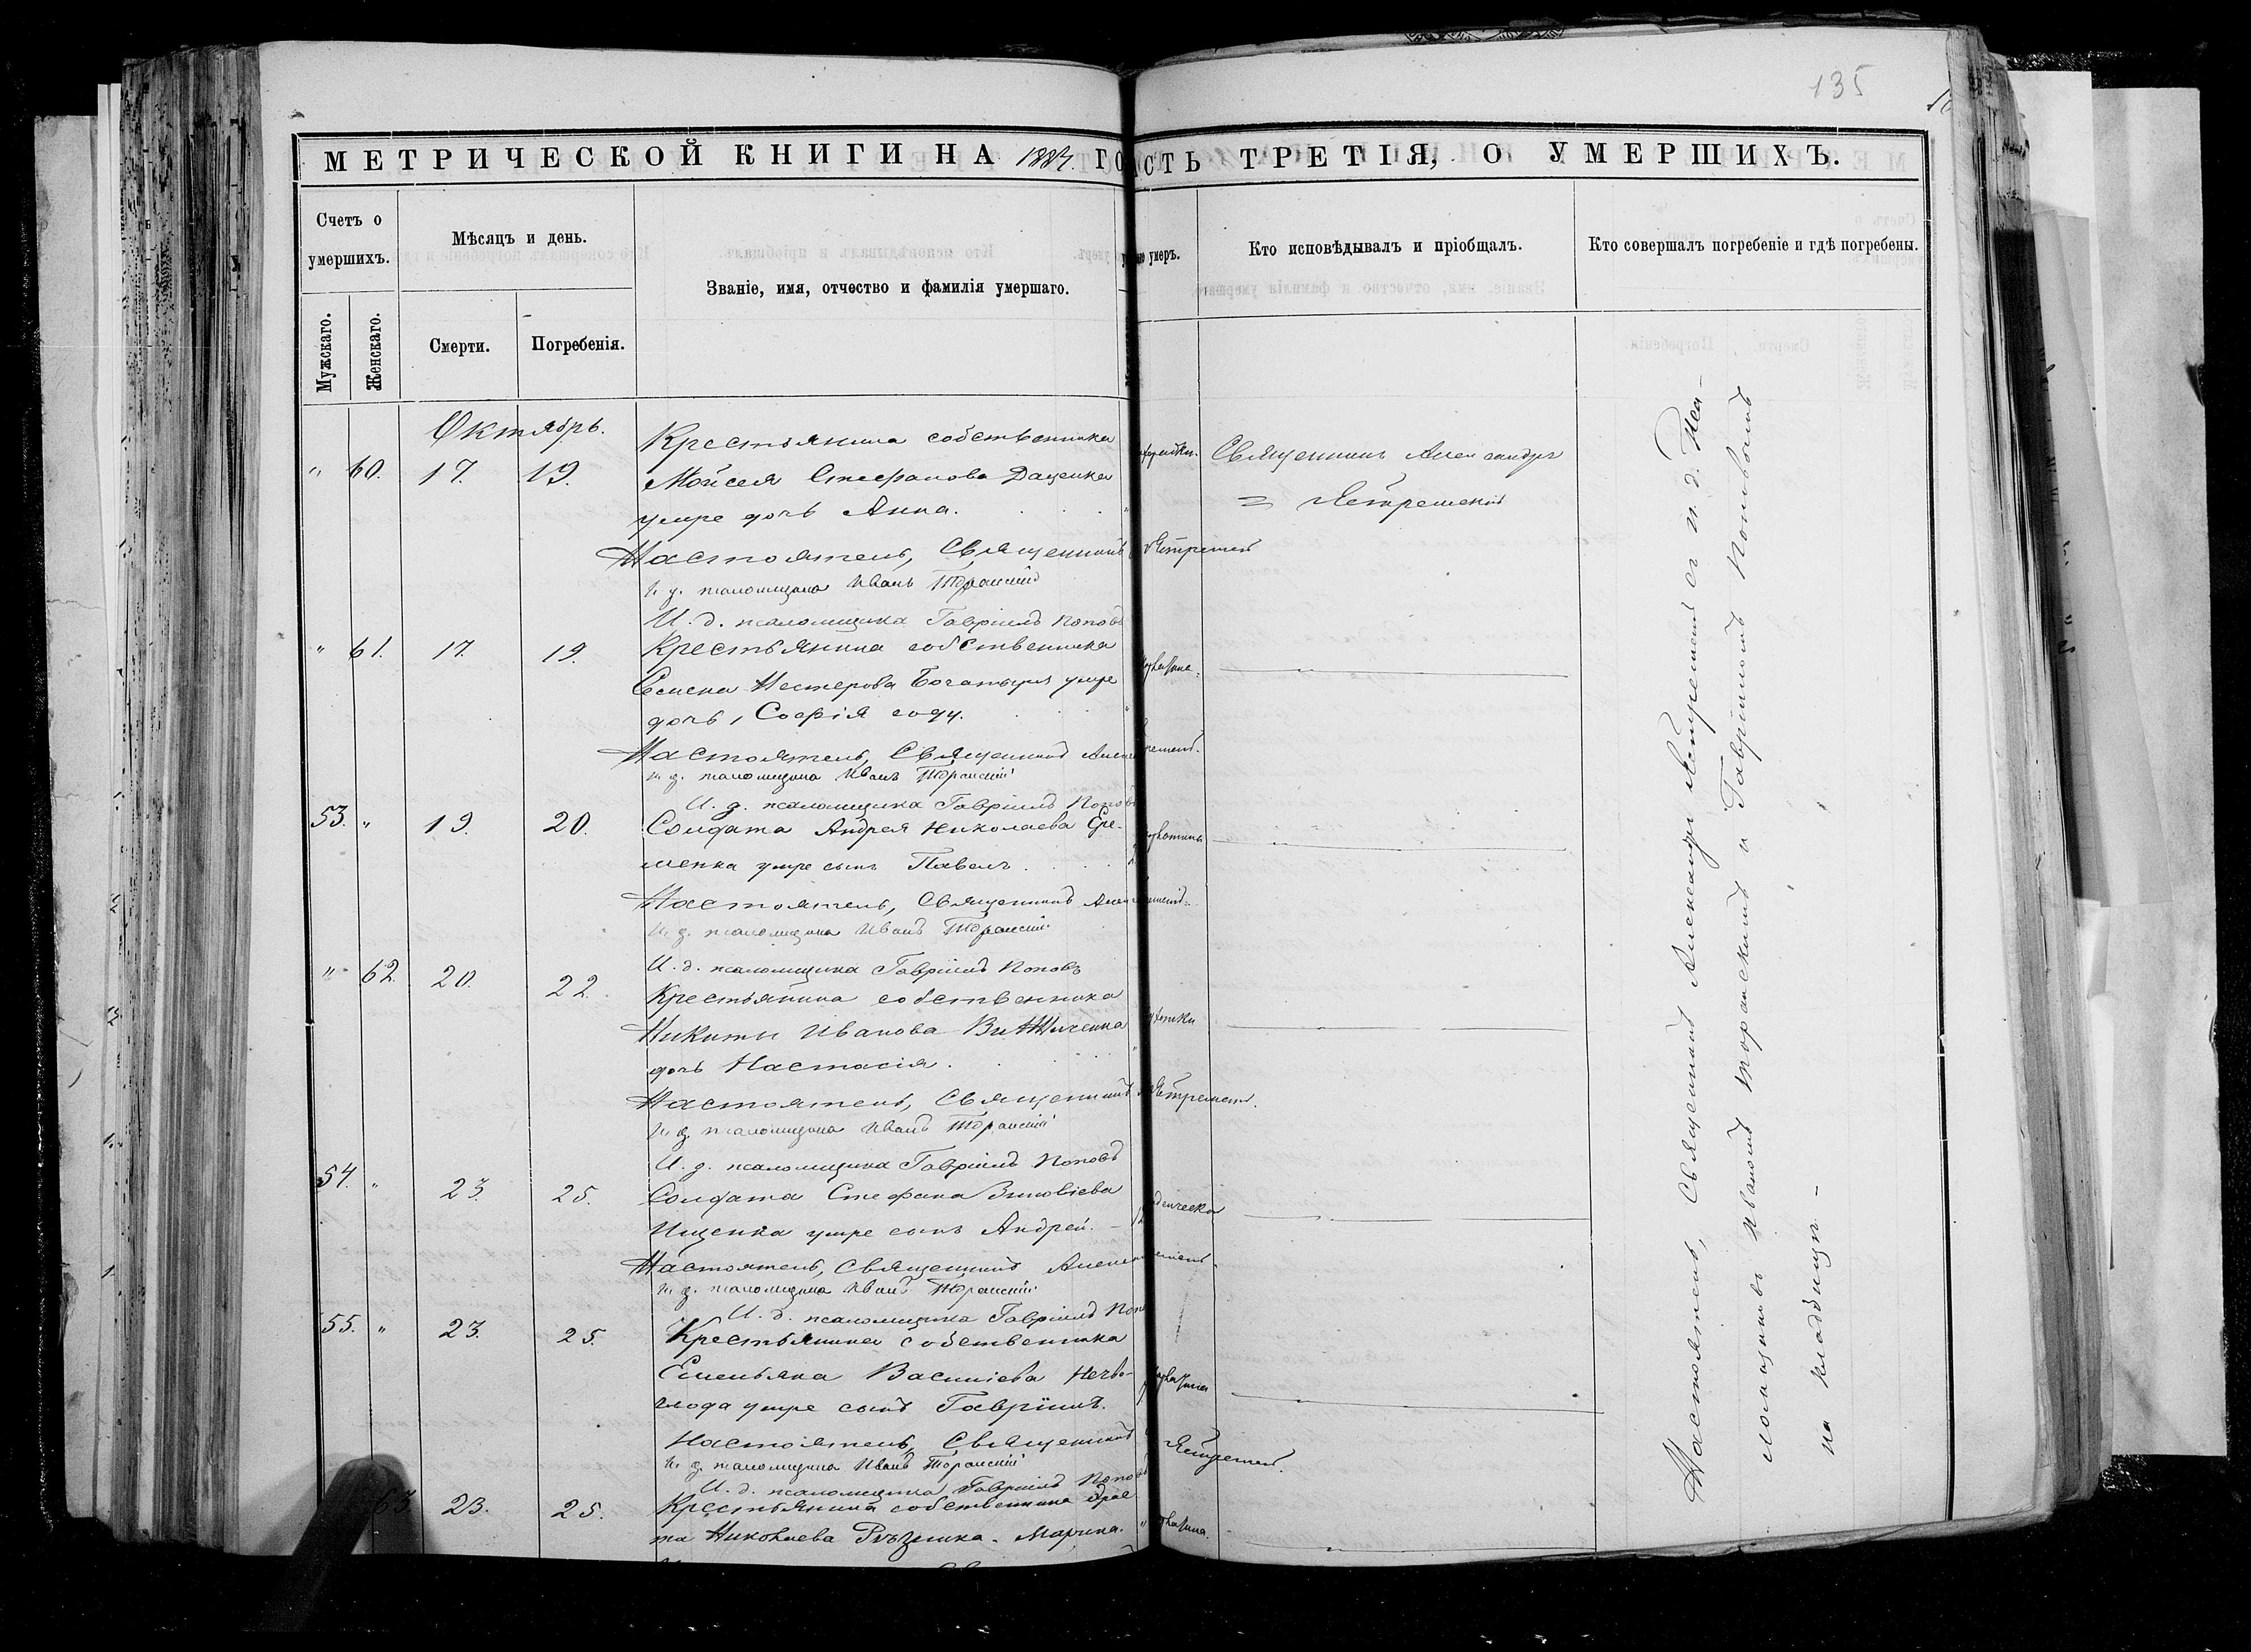 135
МЕТРИЧЕСКОЙ КНИГИ НА 1884. ГО
СТЬ ТРЕТІЯ, О УМЕРШИХЪ.
Счетъ о умершихъ.
Мужскаго.
Женскаго.
Мѣсяцъ и день.
Смерти.
Погребенія.
Званіе, имя, отчество и фамилія умершаго.
умеръ.
Кто исповѣдывалъ и пріобщалъ.
Кто совершалъ погребеніе и гдѣ погребены.
Октябрь.
" 60. 17. 19. Крестьянина собственника
Мойсея Стефанова Даценка
умре дочь Анна.
Священникъ Александръ
Ястремскій
Настоятель, Священникъ Ястремскій
И. д. псаломщика Иванъ Торанскій
И. д. псаломщика Гавріилъ Поповъ
" 61. 17. 19. Крестьянина собственника
Семена Нестерова Богатыря умре
дочь, Софія
Настоятель, Священникъ
И. д. псаломщика Иванъ Торанскій
И. д. псаломщика Гавріилъ Поповъ
53. " 19. 20. Солдата Андрея Николаева Ере-
менка умре сынъ Павелъ.
Настоятель, Священникъ
И. д. псаломщика Иванъ Торанскій
И. д. псаломщика Гавріилъ Поповъ
" 62. 20. 22. Крестьянина собственника
Никиты Иванова
дочь Настасія.
Настоятель, Священникъ Ястремскій.
И. д. псаломщика Иванъ Торанскій
И. д. псаломщика Гавріилъ Поповъ
54. " 23. 25. Солдата Стефана Зиновіева
Ищенка умре сынъ Андрей.
Настоятель, Священникъ
И. д. псаломщика Иванъ Торанскій
И. д. псаломщика Гавріилъ
55. " 23. 25. Крестьянина собственника
Емельяна Василіева Нечво-
лода умре сынъ Гавріилъ.
Настоятель, Священникъ Ястремскій.
И. д. псаломщика Иванъ Торанскій
И. д. псаломщика Гавріилъ Поповъ
63 23. 25. Крестьянина собственника
Николаева Марина.
Настоятель, Священникъ Александръ Ястремскій съ и. д. Пса-
ломщиковъ Иваномъ Торанскимъ и Гавріиломъ Поповымъ
на кладбищѣ